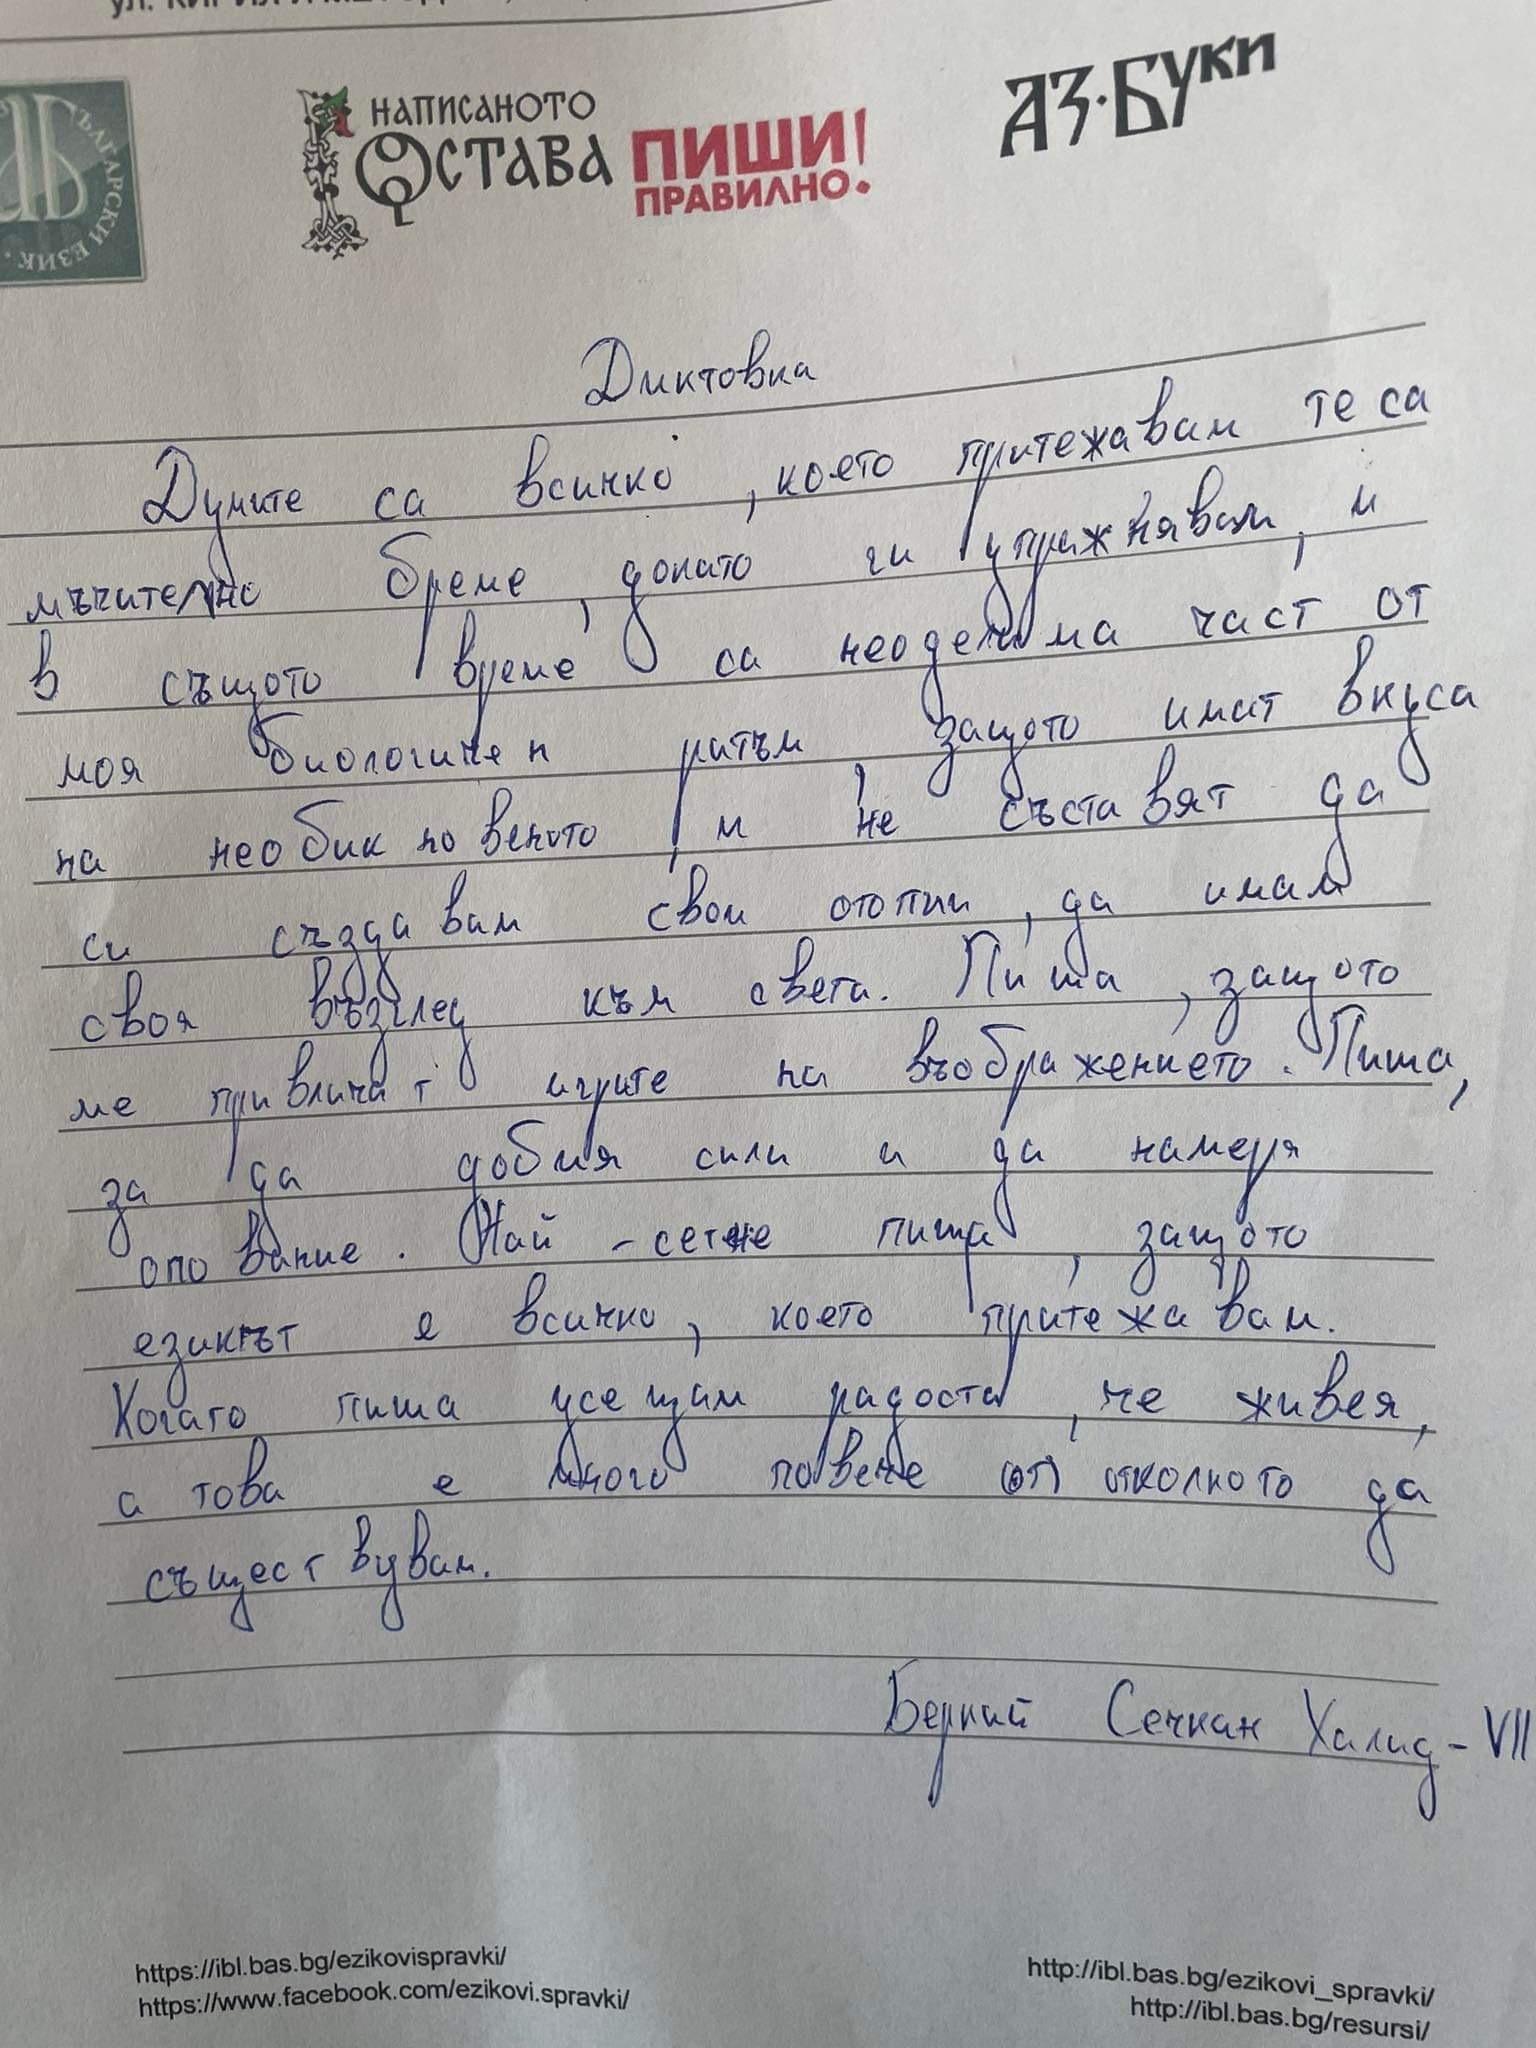 БЪЛГАРСКИ ЕЗИК.
НАПИСАНОТО
ОСТАВА
ПИШИ
ПРАВИЛНО!
АЗ·БУКИ
Диктовка
Думите са всичко, което притежавам те са
мъчително бреме, докато ги упражнявам, и
в същото време са неоделима част от
моя биологичен ритъм, защото имат вкуса
на необикновеното, и не съставят да
си създавам свои отопии, да имам
своя възглед към света. Пиша, защото
ме привличат игрите на въображението. Пиша,
за да добия сили и да намеря
опование. Най-сетне пиша, защото
езикът е всичко, което притежавам.
Когато пиша усещам радостта, че живея,
а това е много повече (от) отколкото да
съществувам.
Беркай Сечкан Халид - VII
https://ibl.bas.bg/ezikovispravki/
https://www.facebook.com/ezikovi.spravki/
http://ibl.bas.bg/ezikovi_spravki/
http://ibl.bas.bg/resursi/